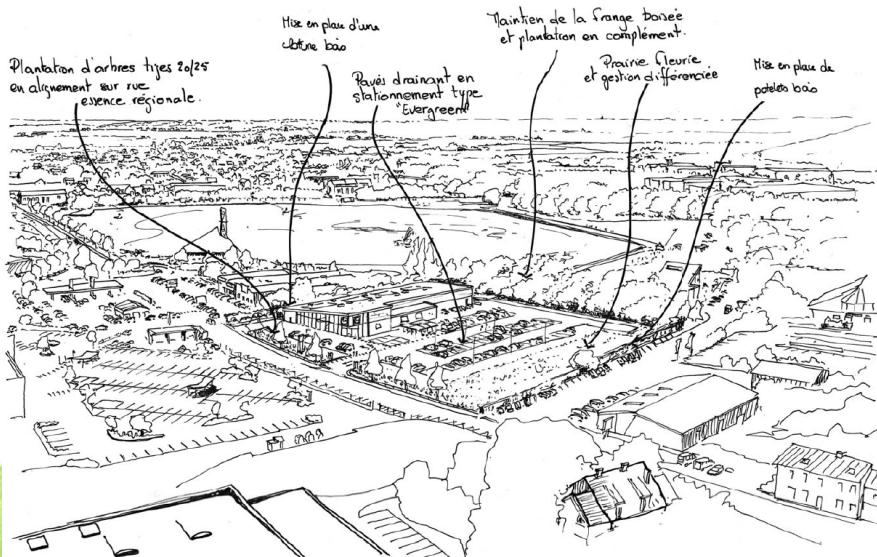 Plantation d'arbres tiges 20/25
en alignement sur rue
essence régionale.
Mise en place d'une
clôture bois
Pavés drainant en
stationnement type
"Evergreen"
Maintien de la frange boisée
et plantation en complément.
Prairie fleurie
et gestion différenciée
Mise en place de
potelets bois